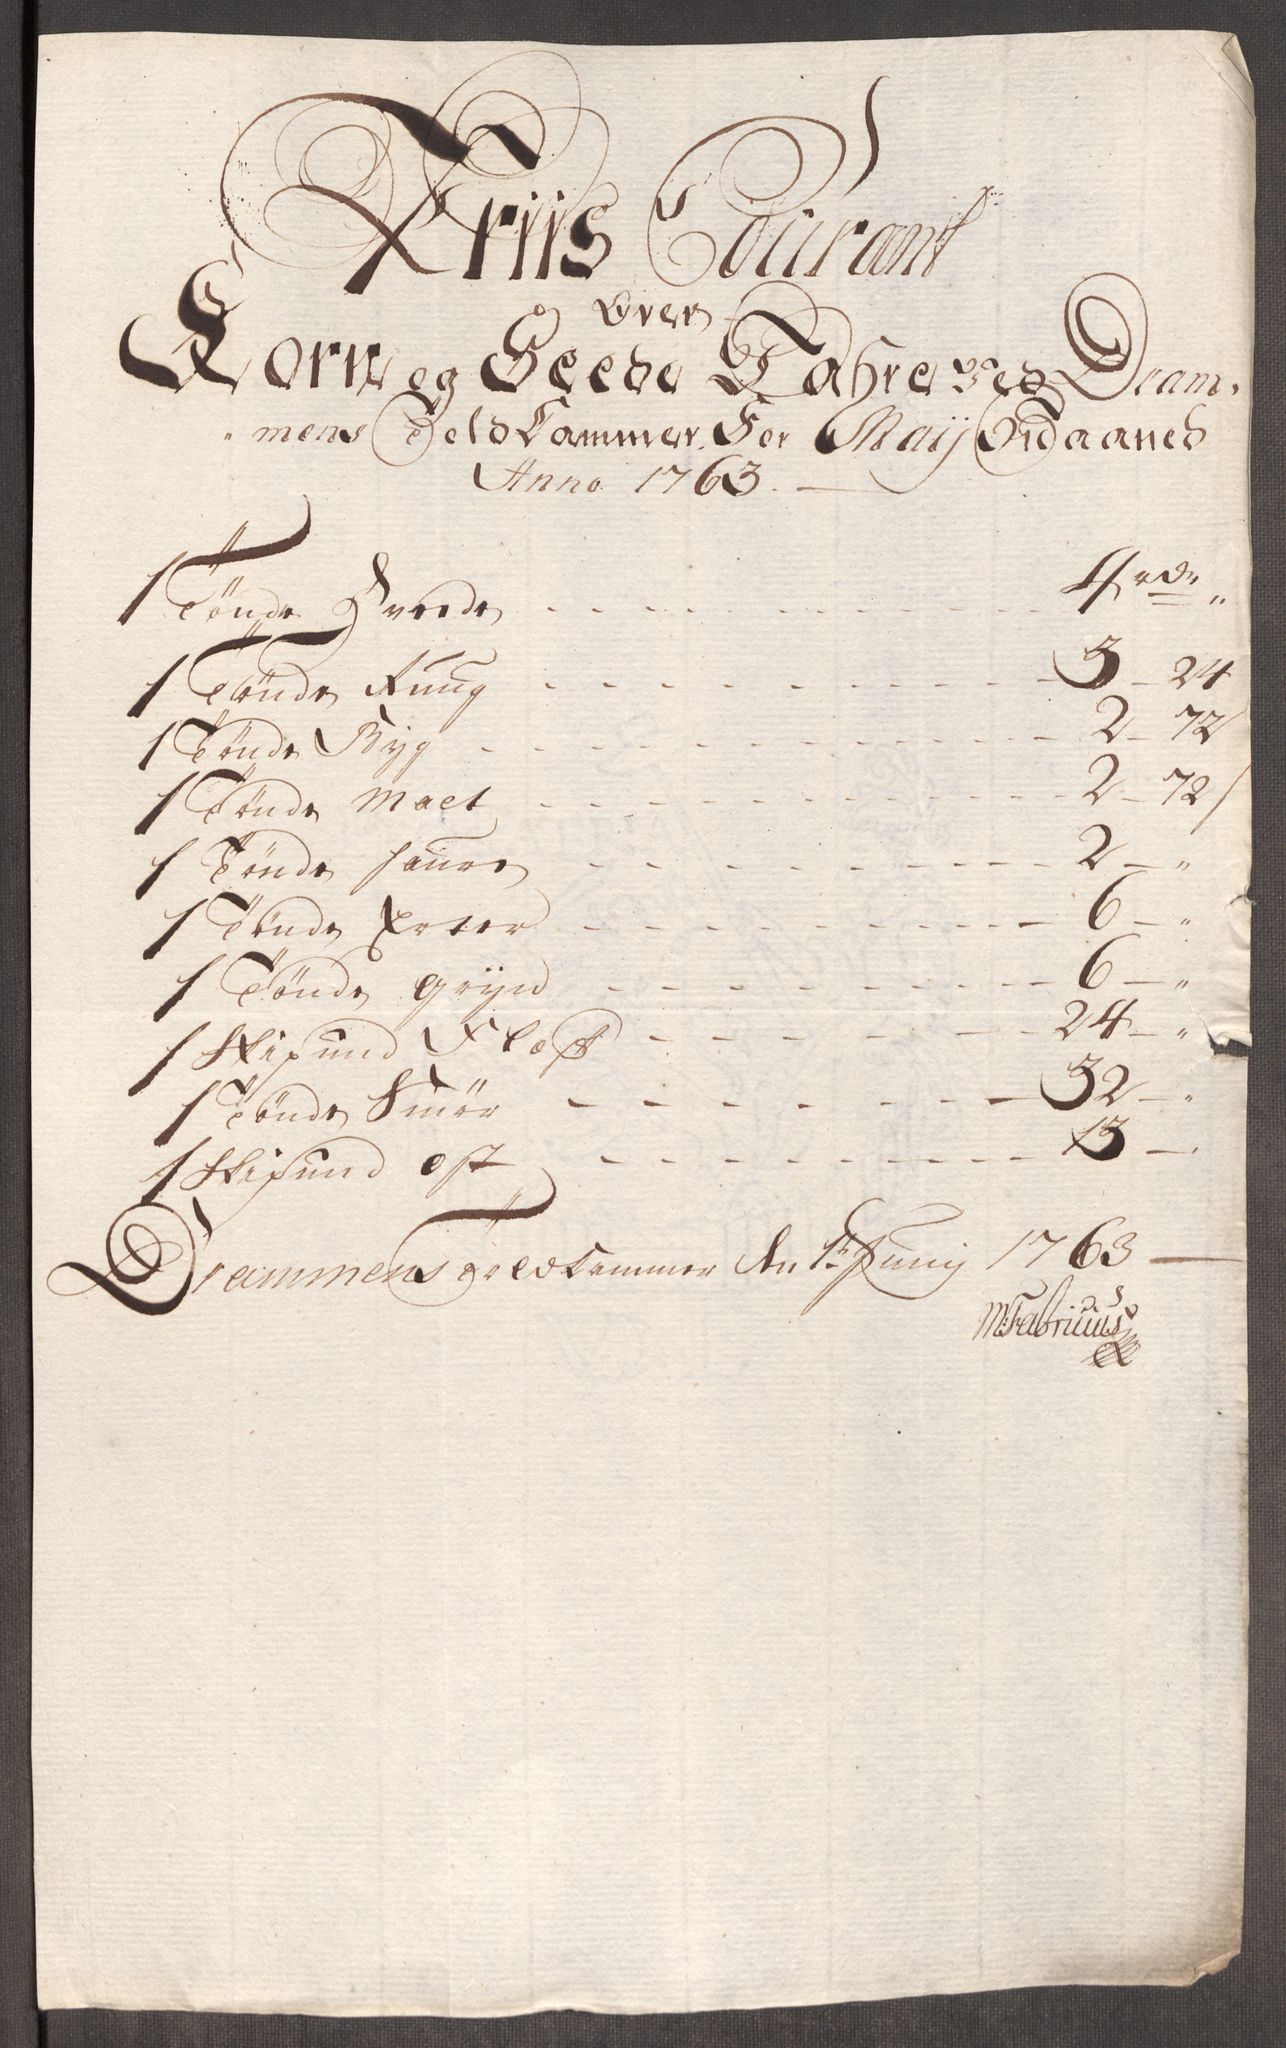 Priis Courant
over
Korn og Feede Vahre ved Dram-
mens Told Cammer For Maij Maaned
Anno 1763.
1 Tönde Hvede 4 rdr "
1 Tönde Ruug 3 - 24
1 Tönde Byg 2 - 72
1 Tönde Malt 2 - 72
1 Tönde Haure 2 - "
1 Tönde Erter 6 - "
1 Tönde gryn 6 - "
1 Skipund Flesk 24 - "
1 Tönde Smör 32 - "
1 Skipund ost 13 - "
Drammens Toldkammer den 1te Junij 1763
M: Fabricius